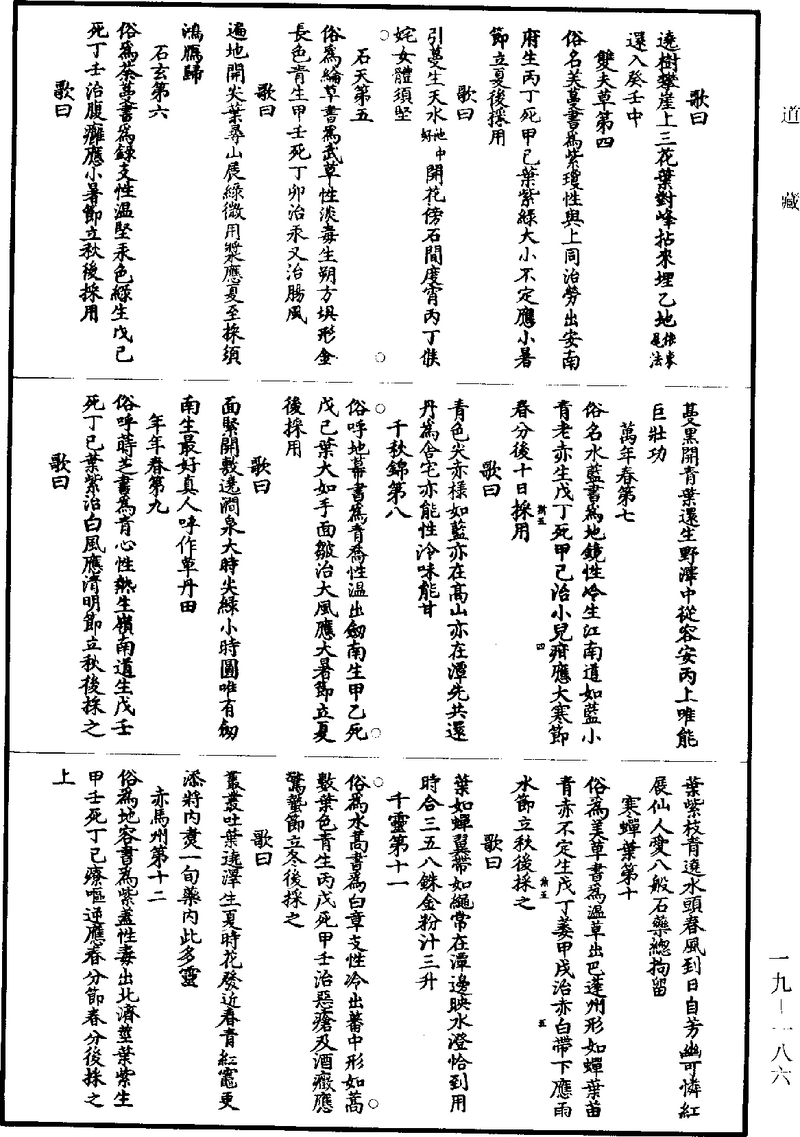 道藏
歌曰
遶樹攀崖上三花葉對峰拈來埋乙地
還入癸壬中
雙夫草第四
俗名芙蔓書為紫瓊性與上同治勞出安南
府生丙丁死甲己葉紫綠大小不定應小暑
節立夏後採用
歌曰
引蔓生天水池中好開花傍石間度霄丙丁候
姹女體須堅
石天第五
俗為綸草書為武草性淡毒生朔方垻形金
長色青生甲壬死丁卯治汞又治腸風
歌曰
遍地開尖葉尋山展綠微用漿應夏至採須
鴻鴈歸
石玄第六
俗為荼蔓書為錄支性溫堅汞色綠生戊己
死丁壬治腹癰應小暑節立秋後採用
歌曰
蔓黑開青葉還生野澤中從容安丙上唯能
巨壯功
萬年春第七
俗名水藍書為地鏡性冷生江南道如藍小
青老亦生戊丁死甲己治小兒疳應大寒節
春分後十日採用
歌曰
青色尖亦樣如藍亦在高山亦在潭先共還
丹為舍宅亦能性冷味能甘
千秋錦第八
俗呼地幕書為青喬性溫出劒南生甲乙死
戊己葉大如手面皺治大風應大暑節立夏
後採用
歌曰
面緊開數遶澗泉大時尖綠小時圓唯有劒
南生最好真人呼作草丹田
年年春第九
俗呼蒔芝書為育心性熱生嶺南道生戊壬
死丁己葉紫治白風應清明節立秋後採之
歌曰
葉紫枝青遶水頭春風到日自芳幽可憐紅
展仙人愛八般石藥總拘留
寒蟬葉第十
俗為美草書為溫草出巴蓬州形如蟬葉苗
青赤不定生戊丁萎甲戌治赤白帶下應雨
水節立秋後採之
歌曰
葉如蟬翼帶如繩常在潭邊映水澄恰到用
時合三五八銖金粉汁三升
千靈第十一
俗為水蒿書為白章支性冷出蕃中形如蒿
數葉色青生丙戊死甲壬治惡瘡及酒癥應
驚蟄節立冬後採之
歌曰
叢叢吐葉遶澤生夏時花發近春青紅竈更
添將內煑一旬藥內此多靈
赤馬州第十二
俗為地容書為紫蓋性毒出北濟莖葉紫生
甲壬死丁己療嘔逆應春分節春分後採之
上
一九─一八六